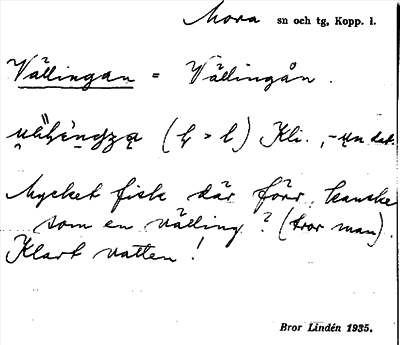 Mora sn och tg, Kopp. l.
Vällingan = Vällingån.
(ḷ > l) Kli., -un dat.
Mycket fisk där förr, kanske
som en välling? (tror man).
Klart vatten!
Bror Lindén 1935.